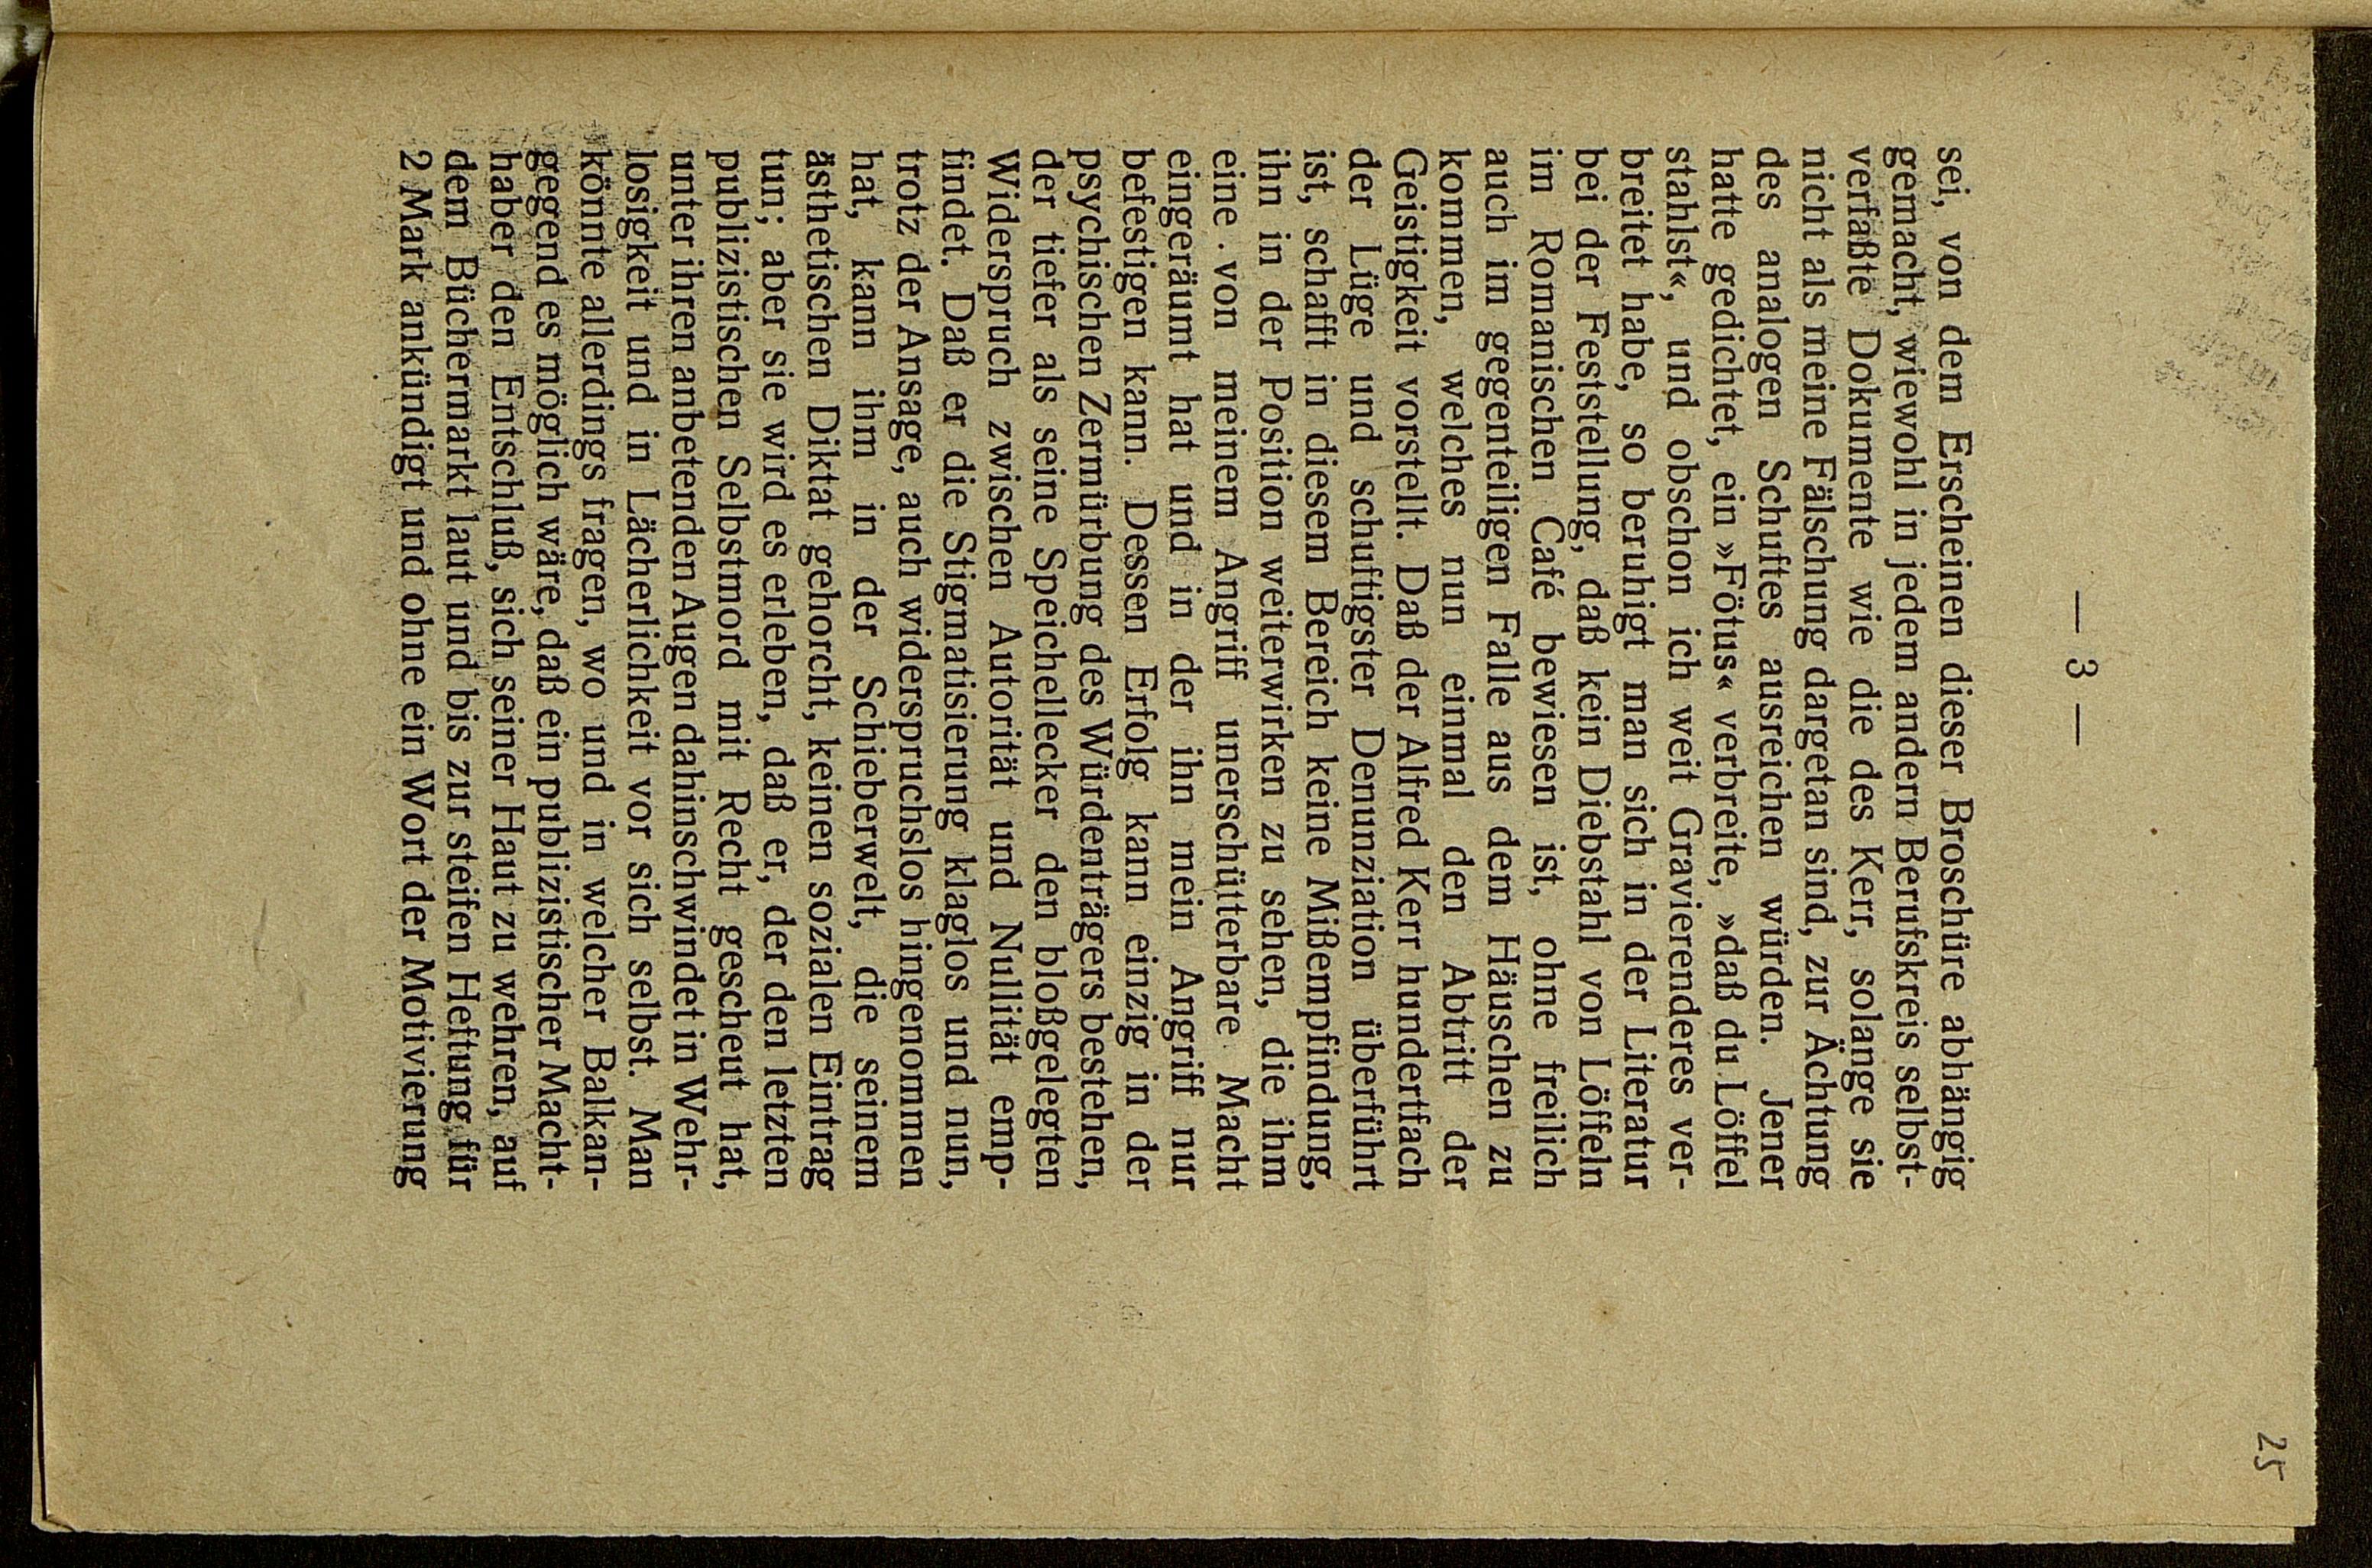 25
— 3 —
sei, von dem Erscheinen dieser Broschüre abhängig
gemacht, wiewohl in jedem andern Berufskreis selbst-
verfaßte Dokumente wie die des Kerr, solange sie
nicht als meine Fälschung dargetan sind, zur Ächtung
des analogen Schuftes ausreichen würden. Jener
hatte gedichtet, ein »Fötus« verbreite, »daß du Löffel
stahlst«, und obschon ich weit Gravierenderes ver-
breitet habe, so beruhigt man sich in der Literatur
bei der Feststellung, daß kein Diebstahl von Löffeln
im Romanischen Café bewiesen ist, ohne freilich
auch im gegenteiligen Falle aus dem Häuschen zu
kommen, welches nun einmal den Abtritt der
Geistigkeit vorstellt. Daß der Alfred Kerr hundertfach
der Lüge und schuftigster Denunziation überführt
ist, schafft in diesem Bereich keine Mißempfindung,
ihn in der Position weiterwirken zu sehen, die ihm
eine von meinem Angriff unerschütterbare Macht
eingeräumt hat und in der ihn mein Angriff nur
befestigen kann. Dessen Erfolg kann einzig in der
psychischen Zermürbung des Würdenträgers bestehen,
der tiefer als seine Speichellecker den bloßgelegten
Widerspruch zwischen Autorität und Nullität emp-
findet. Daß er die Stigmatisierung klaglos und nun,
trotz der Ansage, auch widerspruchslos hingenommen
hat, kann ihm in der Schieberwelt, die seinem
ästhetischen Diktat gehorcht, keinen sozialen Eintrag
tun; aber sie wird es erleben, daß er, der den letzten
publizistischen Selbstmord mit Recht gescheut hat,
unter ihren anbetenden Augen dahinschwindet in Wehr-
losigkeit und in Lächerlichkeit vor sich selbst. Man
könnte allerdings fragen, wo und in welcher Balkan-
gegend es möglich wäre, daß ein publizistischer Macht-
haber den Entschluß, sich seiner Haut zu wehren, auf
dem Büchermarkt laut und bis zur steifen Heftung für
2 Mark ankündigt und ohne ein Wort der Motivierung